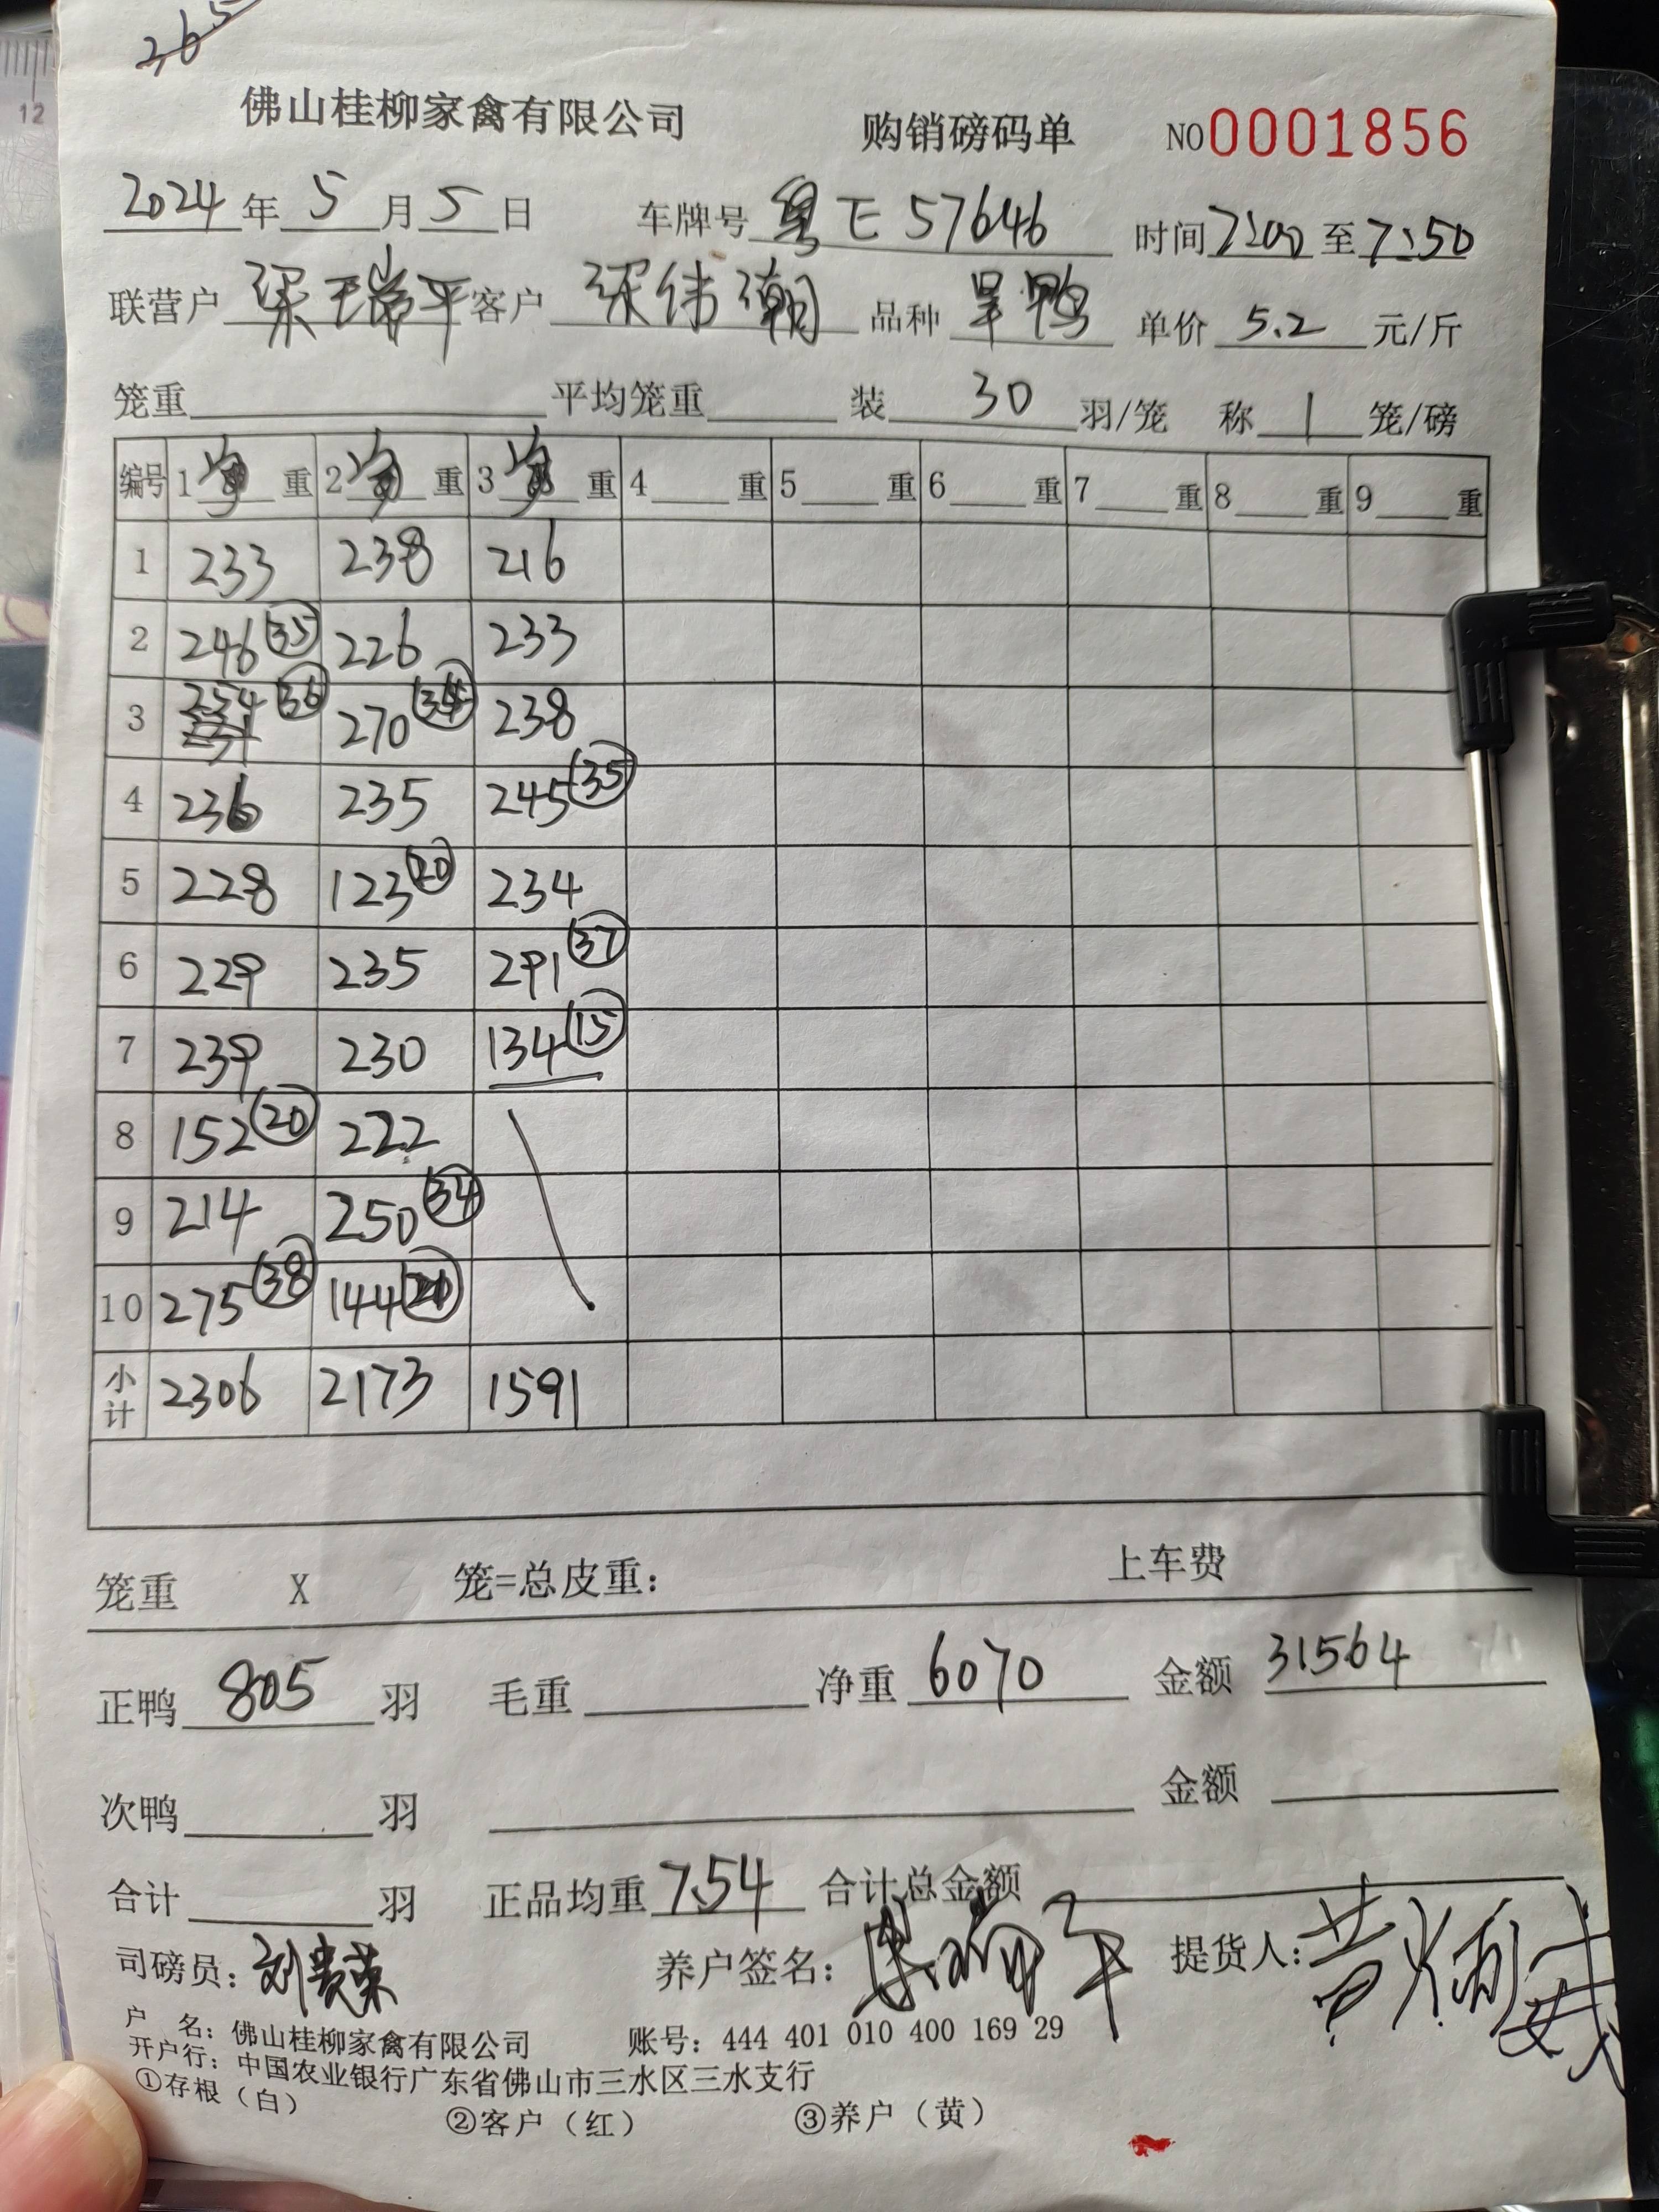 265
佛山桂柳家禽有限公司 购销磅码单 NO 0001856
2024年5月5日 车牌号 粤E57646 时间7:00至7:50
联营户 梁瑞平 客户 梁伟潮 品种 旱鸭 单价 5.2 元/斤
笼重 平均笼重 装 30 羽/笼 称 1 笼/磅
编号 1 净 重 2 净 重 3 净 重 4 重 5 重 6 重 7 重 8 重 9 重
1 233 238 216
2 246 35 226 233
3 254 36 270 34 238
4 236 235 245 35
5 228 123 20 234
6 229 235 291 37
7 239 230 134 15
8 152 20 222
9 214 250 34
10 275 38 144
小计 2306 2173 1591
笼重 X 笼=总皮重： 上车费
正鸭 805 羽 毛重 净重 6070 金额 31564
次鸭 羽 金额
合计 羽 正品均重 7.54 合计总金额
司磅员： 刘贵荣 养户签名： 提货人：
户 名：佛山桂柳家禽有限公司 账号：444 401 010 400 169 29
开户行：中国农业银行广东省佛山市三水区三水支行
①存根（白） ②客户（红） ③养户（黄）
12